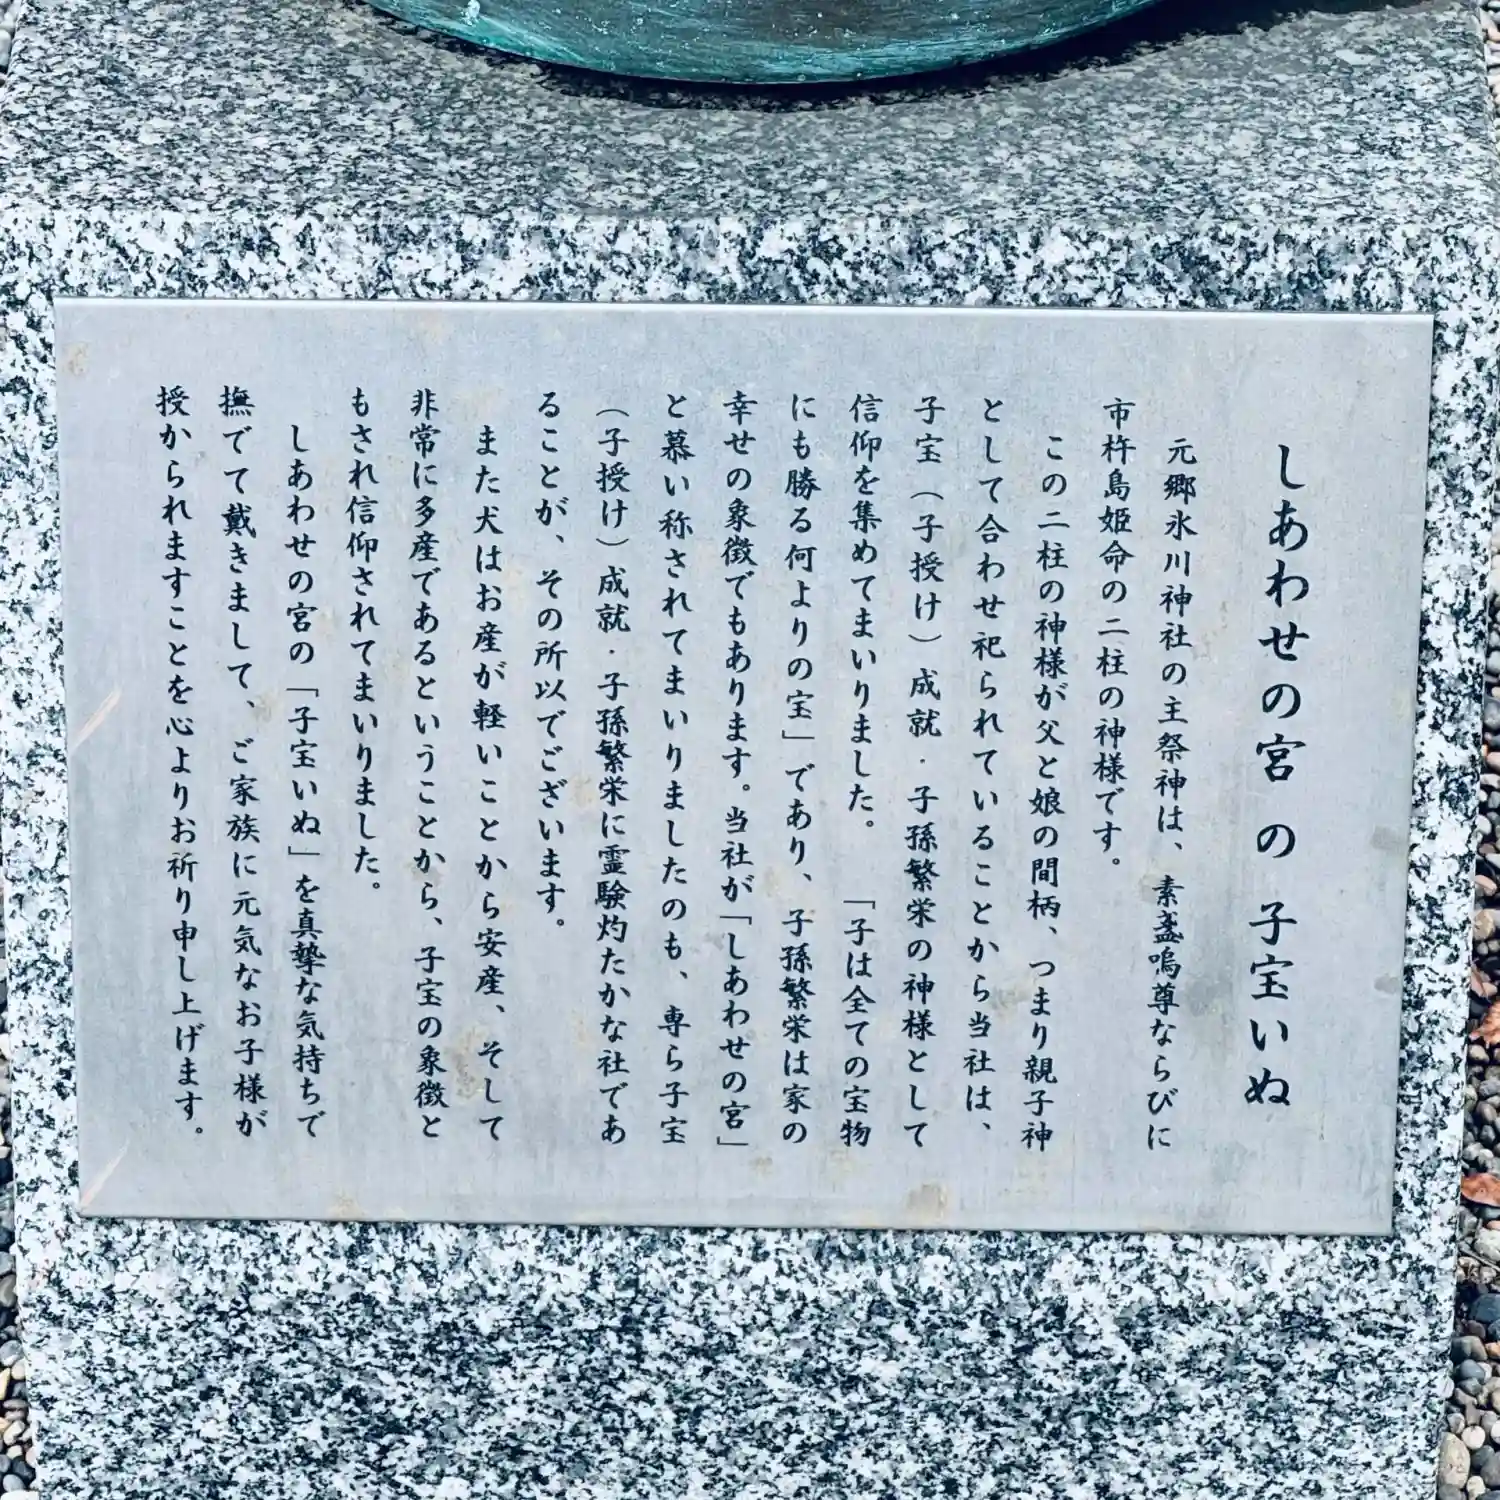 しあわせの宮 の 子宝いぬ
元郷氷川神社の主祭神は、素盞嗚尊ならびに
市杵島姫命の二柱の神様です。
この二柱の神様が父と娘の間柄、つまり親子神
として合わせ祀られていることから当社は、
子宝（子授け）成就・子孫繁栄の神様として
信仰を集めてまいりました。「子は全ての宝物
にも勝る何よりの宝」であり、子孫繁栄は家の
幸せの象徴でもあります。当社が「しあわせの宮」
と慕い称されてまいりましたのも、専ら子宝
（子授け）成就・子孫繁栄に霊験灼たかな社であ
ることが、その所以でございます。
また犬はお産が軽いことから安産、そして
非常に多産であるということから、子宝の象徴と
もされ信仰されてまいりました。
しあわせの宮の「子宝いぬ」を真摯な気持ちで
撫でて戴きまして、ご家族に元気なお子様が
授かられますことを心よりお祈り申し上げます。